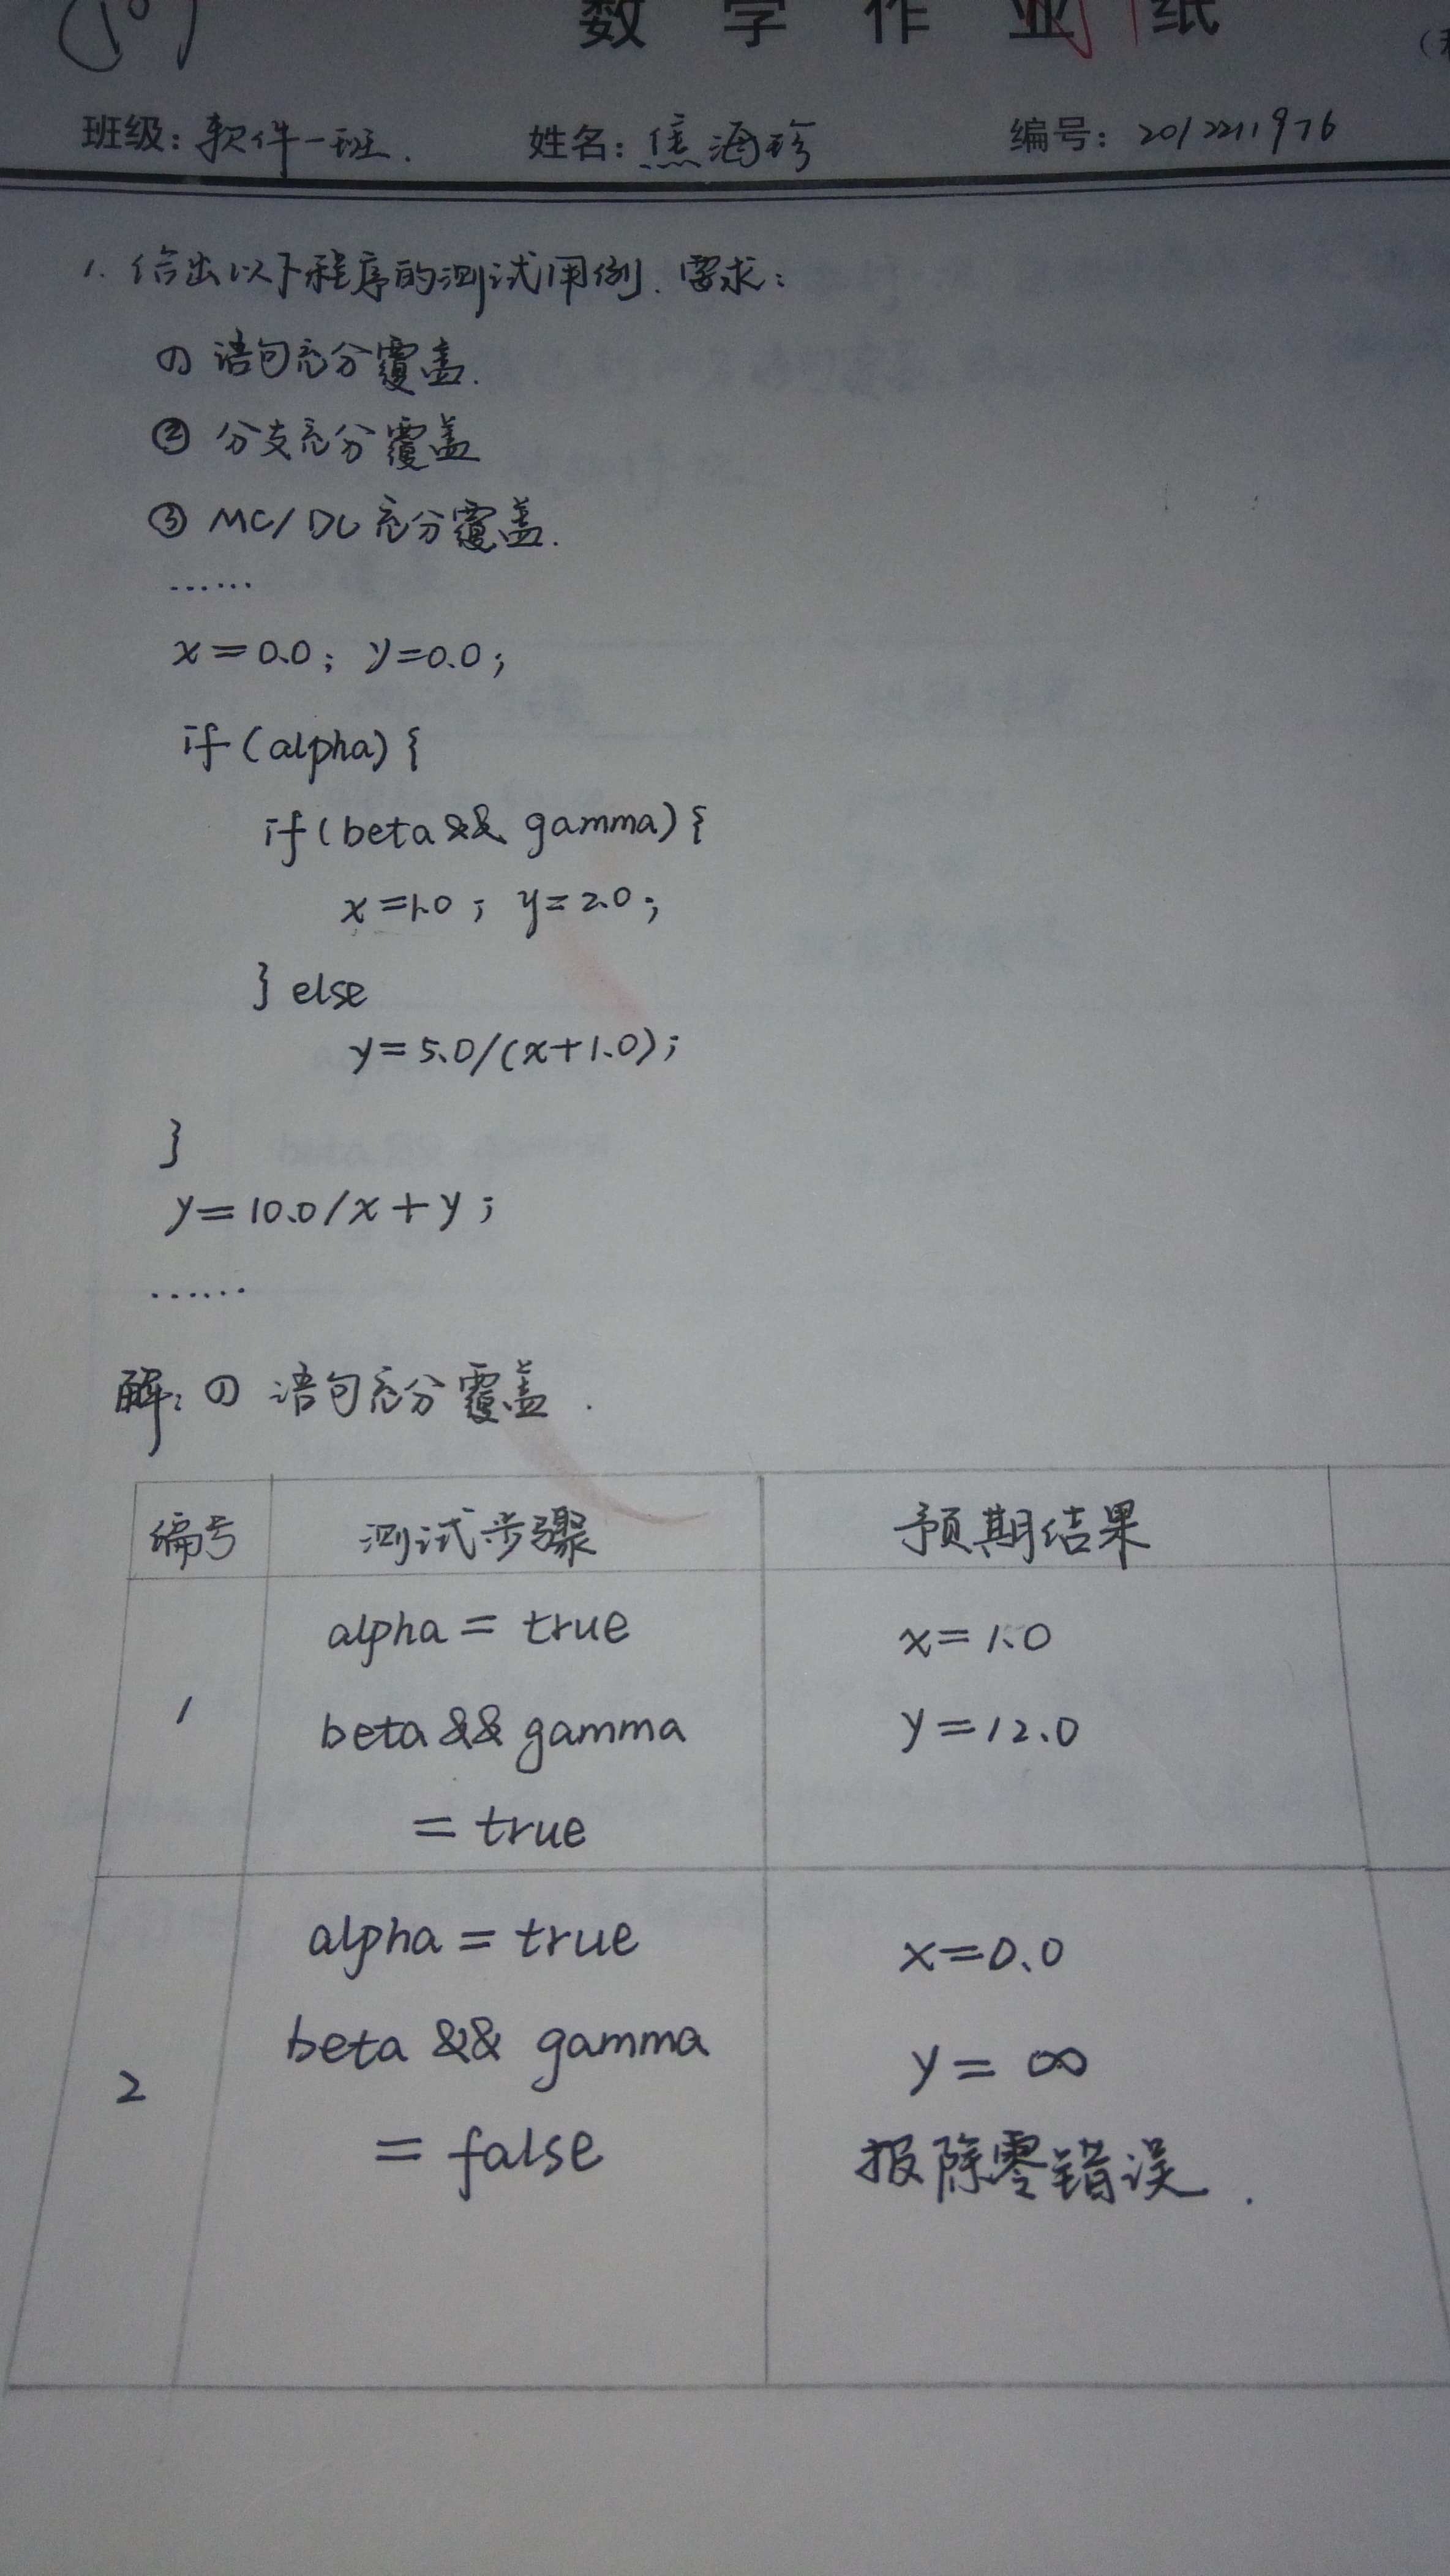 数学作业纸
班级：软件一班. 姓名：焦海珍 编号：2012211976
1. 给出以下程序的测试用例. 要求：
① 语句充分覆盖.
② 分支充分覆盖
③ MC/DC充分覆盖.
......
x=0.0; y=0.0;
if(alpha){
if(beta && gamma){
x=1.0; y=2.0;
}else
y=5.0/(x+1.0);
}
y=10.0/x+y;
......
解：① 语句充分覆盖.
编号 测试步骤 预期结果
alpha = true x=1.0
1 beta && gamma y=12.0
= true
alpha = true x=0.0
beta && gamma y=∞
2 = false 报除零错误.